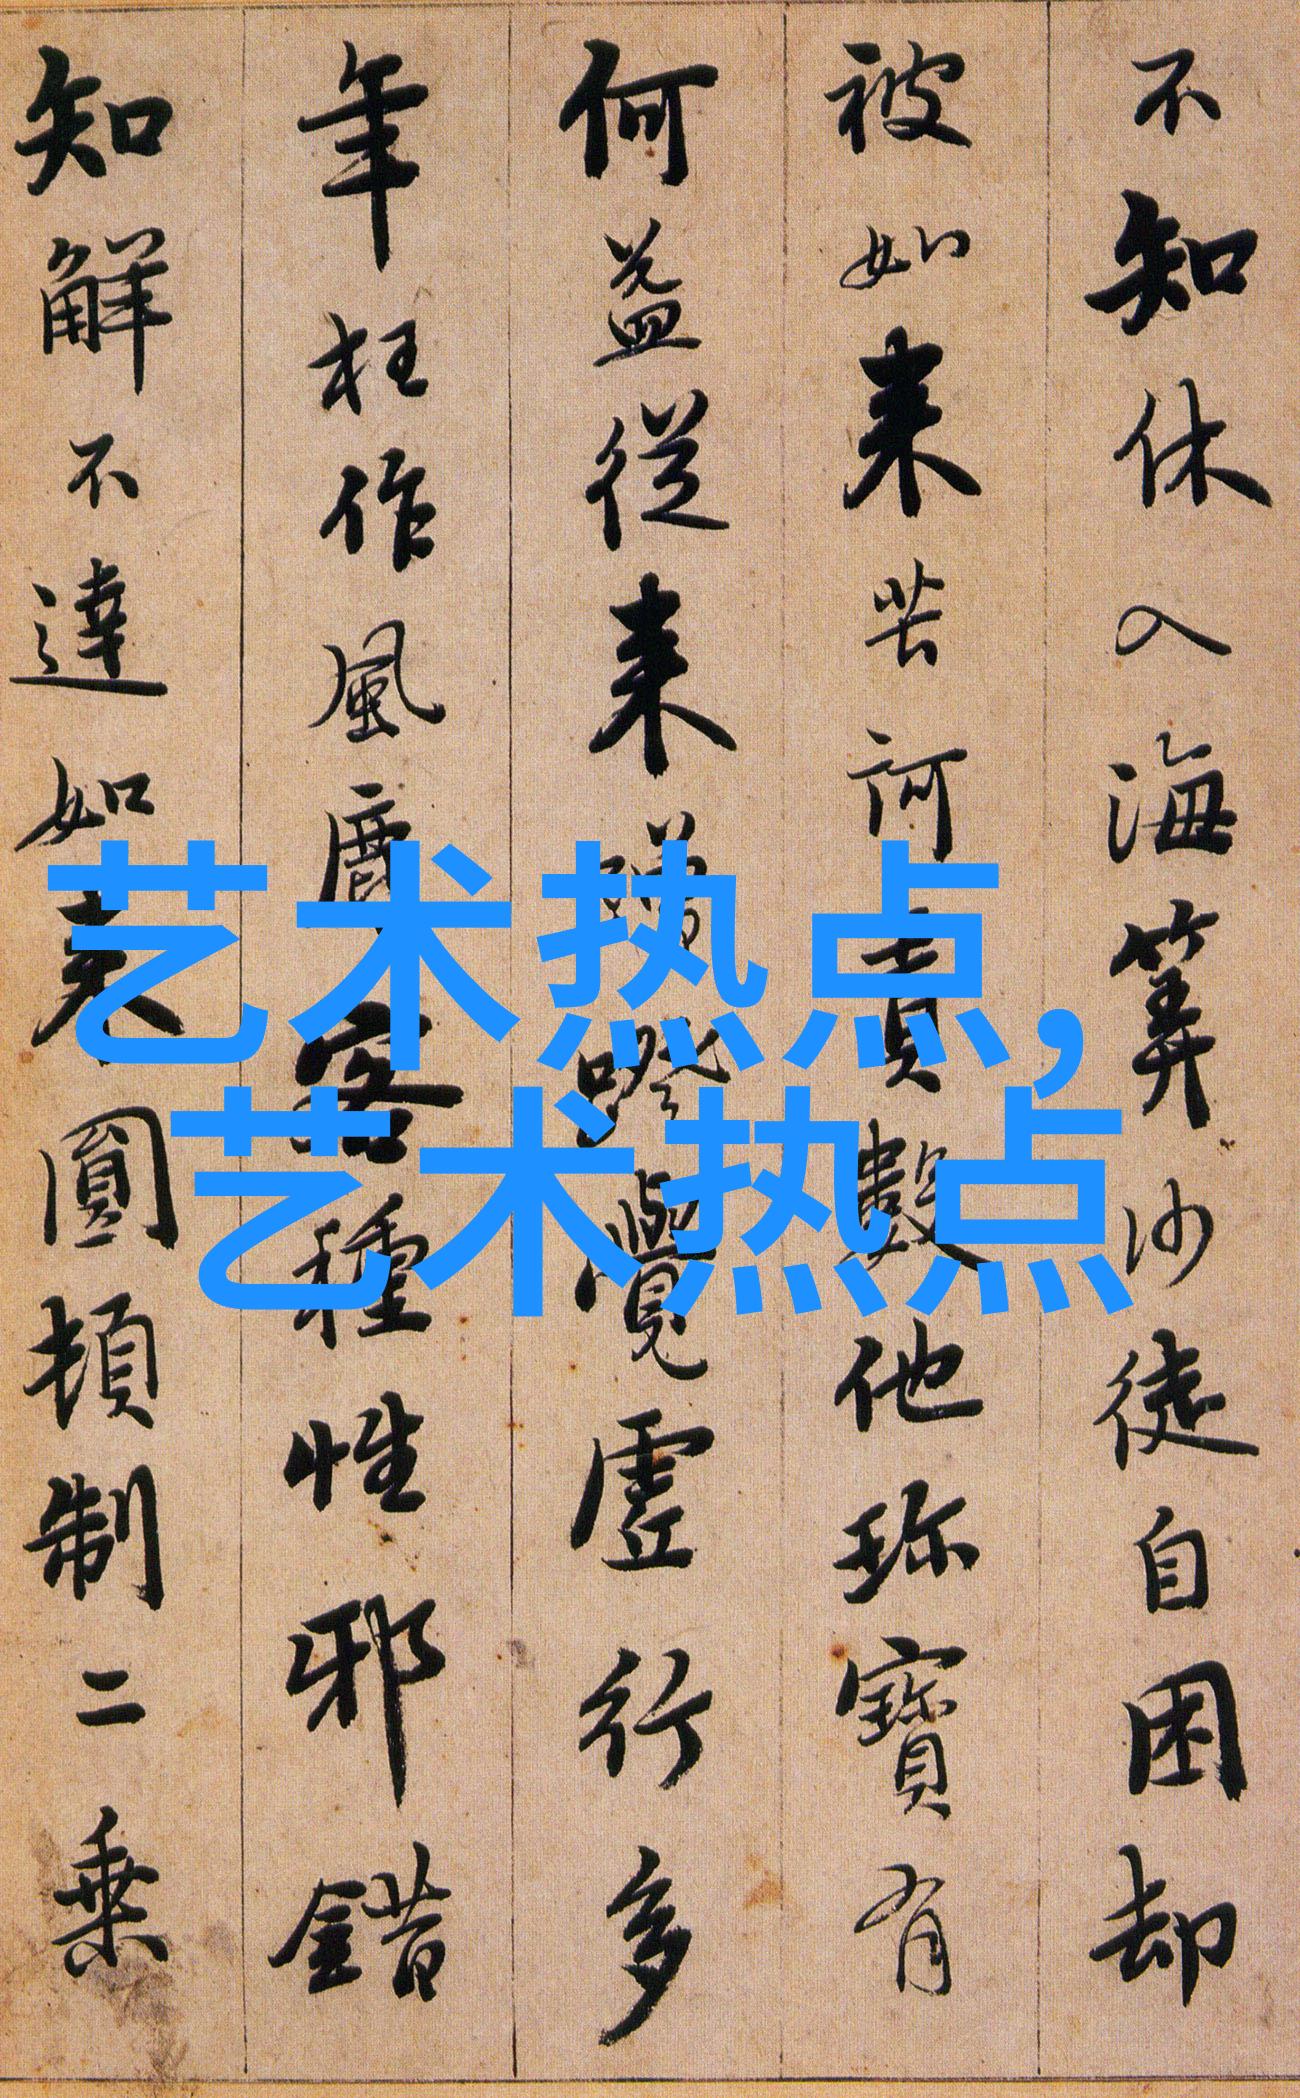 不知休入海筭沙徒自困却
被如来苦訶責數他珎寶有
何益從来蹭蹬覺虛行多
年枉作風塵客種性邪錯
知解不達如来圓頓制二乘
艺术热点,
艺术热点